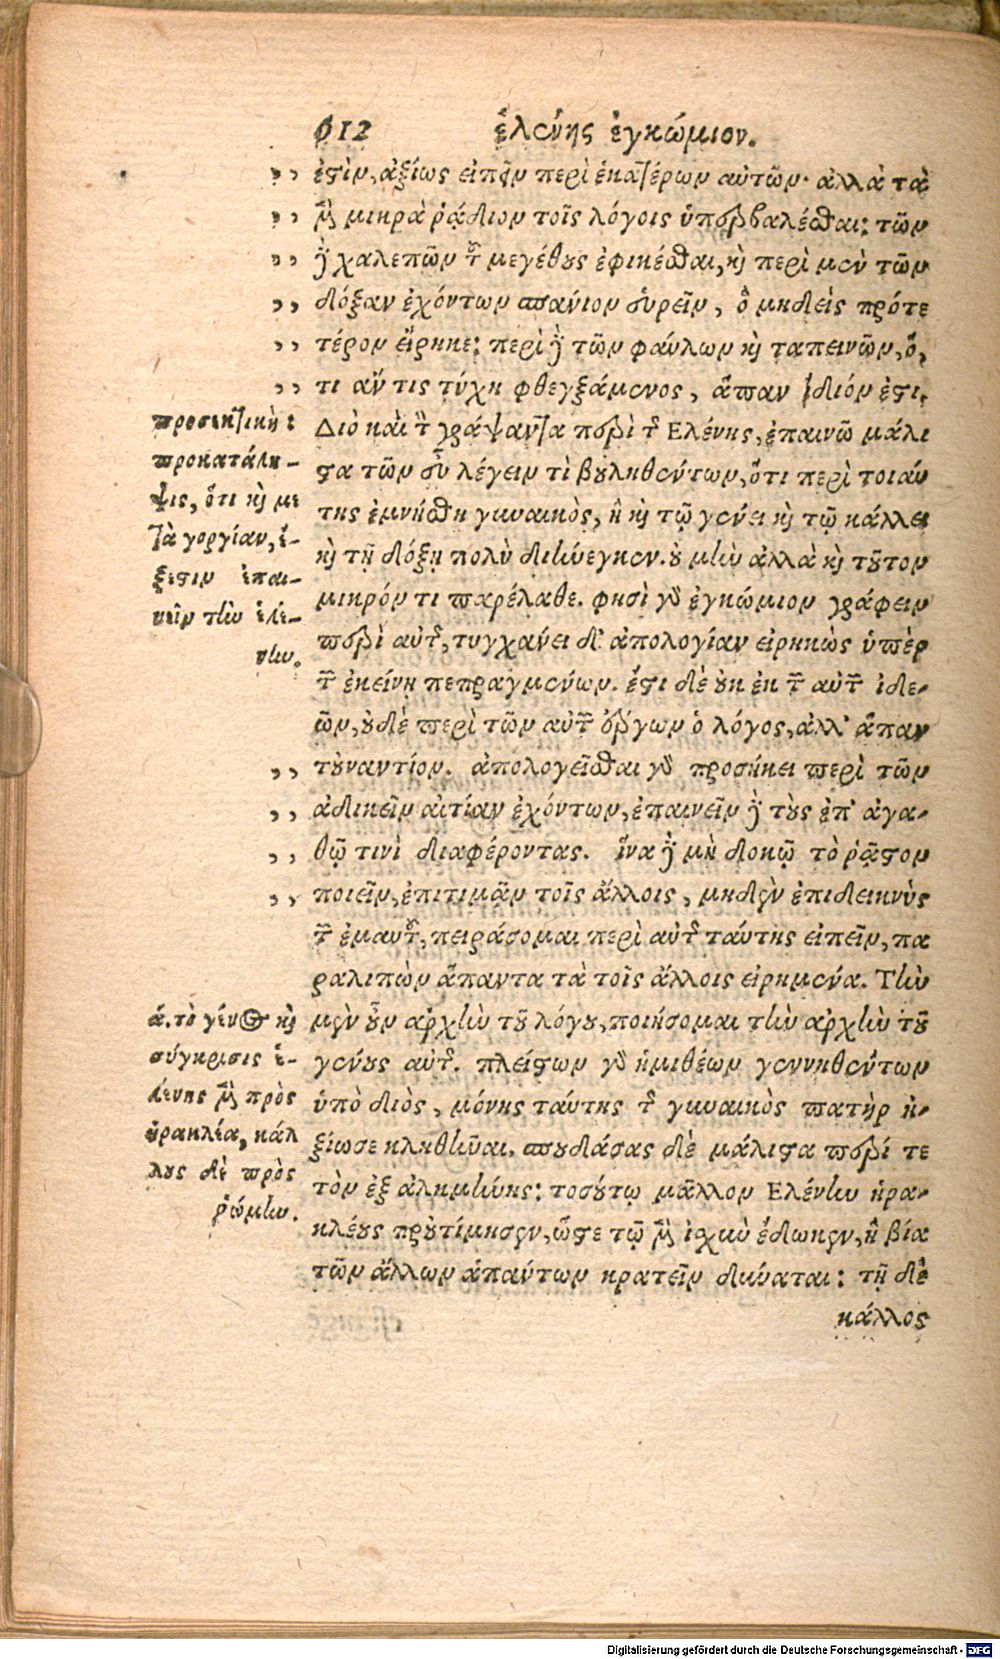 612 ἑλένης ἐγκώμιον.
,, ἐστὶν, ἀξίως εἰπεῖν περὶ ἑκατέρων αὐτῶν· ἀλλὰ τὰ
,, μὲν μικρὰ ῥᾴδιον τοῖς λόγοις ὑπερβαλέσθαι: τῶν
,, δὲ χαλεπῶν τοῦ μεγέθους ἐφικέσθαι, καὶ περὶ μὲν τῶν
,, δόξαν ἐχόντων σπάνιον εὑρεῖν, ὃ μηδεὶς πρότε
,, τέρον εἴρηκε: περὶ δὲ τῶν φαύλων καὶ ταπεινῶν, ὅ,
,, τι ἄν τις τύχῃ φθεγξάμενος, ἅπαν ἴδιόν ἐστι.
Διὸ καὶ τὸν γράψαντα περὶ τῆς Ελένης, ἐπαινῶ μάλι
στα τῶν εὖ λέγειν τὶ βουληθέντων, ὅτι περὶ τοιαύ
της ἐμνήσθη γυναικὸς, ἣ καὶ τῷ γένει καὶ τῷ κάλλει
καὶ τῇ δόξῃ πολὺ διήνεγκεν. οὐ μὴν ἀλλὰ καὶ τοῦτον
μικρόν τι παρέλαθε. φησὶ γὰρ ἐγκώμιον γράφειν
περὶ αὐτῆς, τυγχάνει δ' ἀπολογίαν εἰρηκὼς ὑπὲρ
τῶν ἐκείνῃ πεπραγμένων. ἔστι δὲ οὐκ ἐκ τῶν αὐτῶν ἰδε-
ῶν, οὐδὲ περὶ τῶν αὐτῶν ἔργων ὁ λόγος, ἀλλ' ἅπαν
,, τοὐναντίον. ἀπολογεῖσθαι γὰρ προσήκει περὶ τῶν
,, ἀδικεῖν αἰτίαν ἐχόντων, ἐπαινεῖν δὲ τοὺς ἐπ' ἀγα-
,, θῷ τινὶ διαφέροντας. ἵνα δὲ μὴ δοκῶ τὸ ῥᾷστον
,, ποιεῖν, ἐπιτιμᾷν τοῖς ἄλλοις, μηδὲν ἐπιδεικνὺς
τῶν ἐμαυτοῦ, πειράσομαι περὶ αὐτῆς ταύτης εἰπεῖν, πα
ραλιπὼν ἅπαντα τὰ τοῖς ἄλλοις εἰρημένα. Τὴν
μὲν οὖν ἀρχὴν τοῦ λόγου, ποιήσομαι τὴν ἀρχὴν τοῦ
γένους αὐτῆς. πλείστων γὰρ ἡμιθέων γεννηθέντων
ὑπὸ διὸς, μόνης ταύτης τῆς γυναικὸς πατὴρ ἠ-
ξίωσε κληθῆναι. σπουδάσας δὲ μάλιστα περί τε
τὸν ἐξ ἀλκμήνης: τοσούτῳ μᾶλλον Ελένην ἡρα-
κλέους προὐτίμησεν, ὥστε τῷ μὲν ἰσχὺν ἔδωκεν, ἣ βίᾳ
τῶν ἄλλων ἁπάντων κρατεῖν δύναται: τῇ δὲ
κάλλος
προσεκτικὴ:
προκατάλη-
ψις, ὅτι καὶ με
τὰ γοργίαν, ἔ-
ξεστιν ἐπαι-
νεῖν τὴν ἑλέ-
νην.
ά. τὸ γένος καὶ
σύγκρισις ἑ-
λένης μὲν πρὸς
ἡρακλέα, κάλ
λους δὲ πρὸς
ῥώμην.
Digitalisierung gefördert durch die Deutsche Forschungsgemeinschaft - DFG